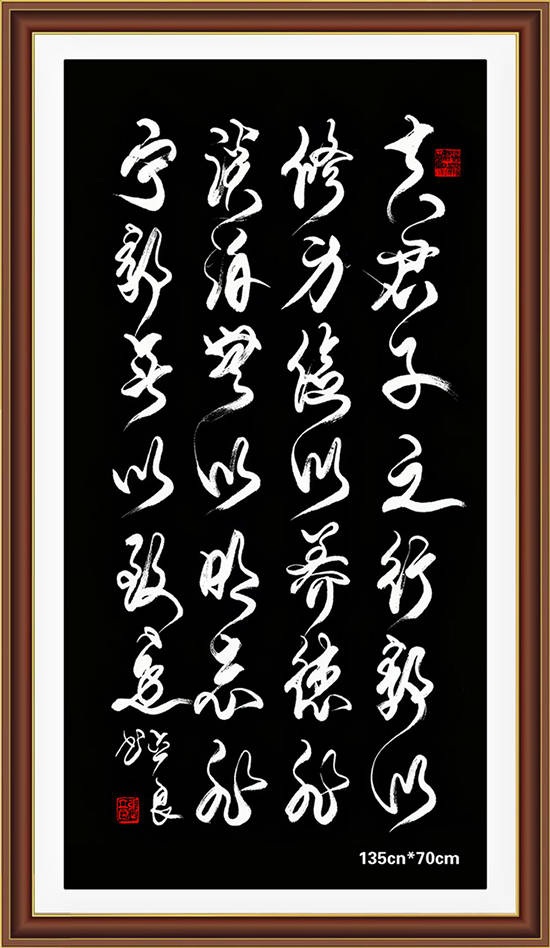 夫君子之行静以
修身俭以养德非
淡泊無以明志非
宁静无以致远
135cn*70cm